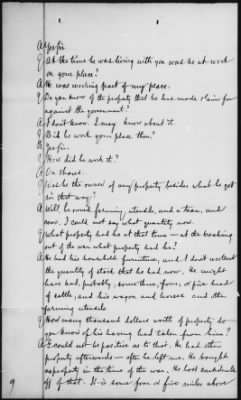 A Yes sir.
Q At the time he was living with you was he at work
on your place?
A He was working part of my place.
Q Do you know of the property that he has made claim for
against the government?
A I don't know. I may know about it.
Q Did he work your place then?
A Yes sir.
Q How did he work it?
A On shares.
Q Was he the owner of any property besides what he got
in that way?
A Well, he owned farming utensils, and a team, and
cows, I could not say what quantity now.
Q What property had he at that time — at the breaking
out of the war what property had he?
A He had his household furniture, and I don't recollect
the quantity of stock that he had now. He might
have had, probably, some three, four, or five head
of cattle, and his wagon and horses and other
farming utensils.
Q How many thousand dollars worth of property do
you know of his having had taken from him?
A I could not be positive as to that. He had other
property afterwards — after he left me. He bought
property in the time of the war. He lost considerable
off of that. It is some four or five miles above
9